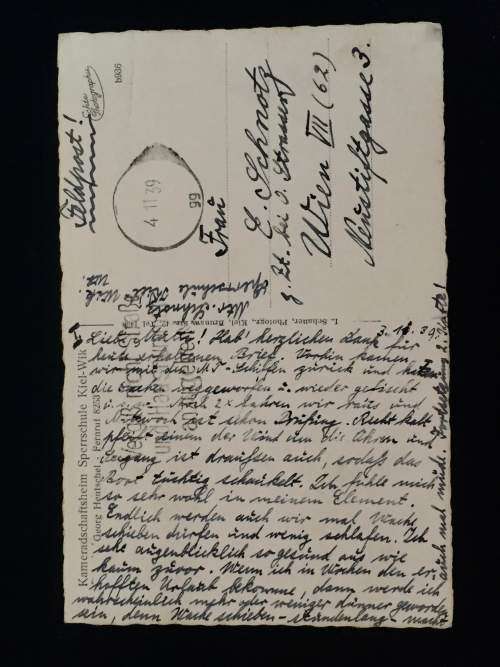 Feldpost!
Echte Photographie
b936
4 11 39
99
Frau
E. Schnotz
z. Zt. bei
Wien VII (62)
Neustiftgasse 3.
Mtr. Schnotz
Sperrschule Kiel-Wik
L. Schaller, Photogr., Kiel, Brunsw.
Kameradschaftsheim Sperrschule Kiel-Wik
Georg Hentschel Fernruf 8253
I
3. 11. 39.
Liebe Mutti! Hab' herzlichen Dank für
heute erhaltenen Brief. Vorhin kamen
wir mit den M.-T.-Schiffen zurück und hatten
die weggeworfen u. wieder gefischt
Noch 2x fahren wir raus und
Mittwoch ist schon Prüfung. Recht kalt
pfeift einem der Wind um die Ohren und
Seegang ist draußen auch, sodaß das
Boot tüchtig schaukelt. Ich fühle mich
so sehr wohl in meinem Element.
Endlich werden auch wir mal Wache
schieben dürfen und wenig schlafen. Ich
sehe augenblicklich so gesund aus wie
kaum zuvor. Wenn ich in Wochen den er-
hofften Urlaub bekomme, dann werde ich
wahrscheinlich mehr oder weniger dünner geworden
sein, denn Wache schieben – stundenlang – macht
auch mal müde. Fortsetzung 2. Karte!